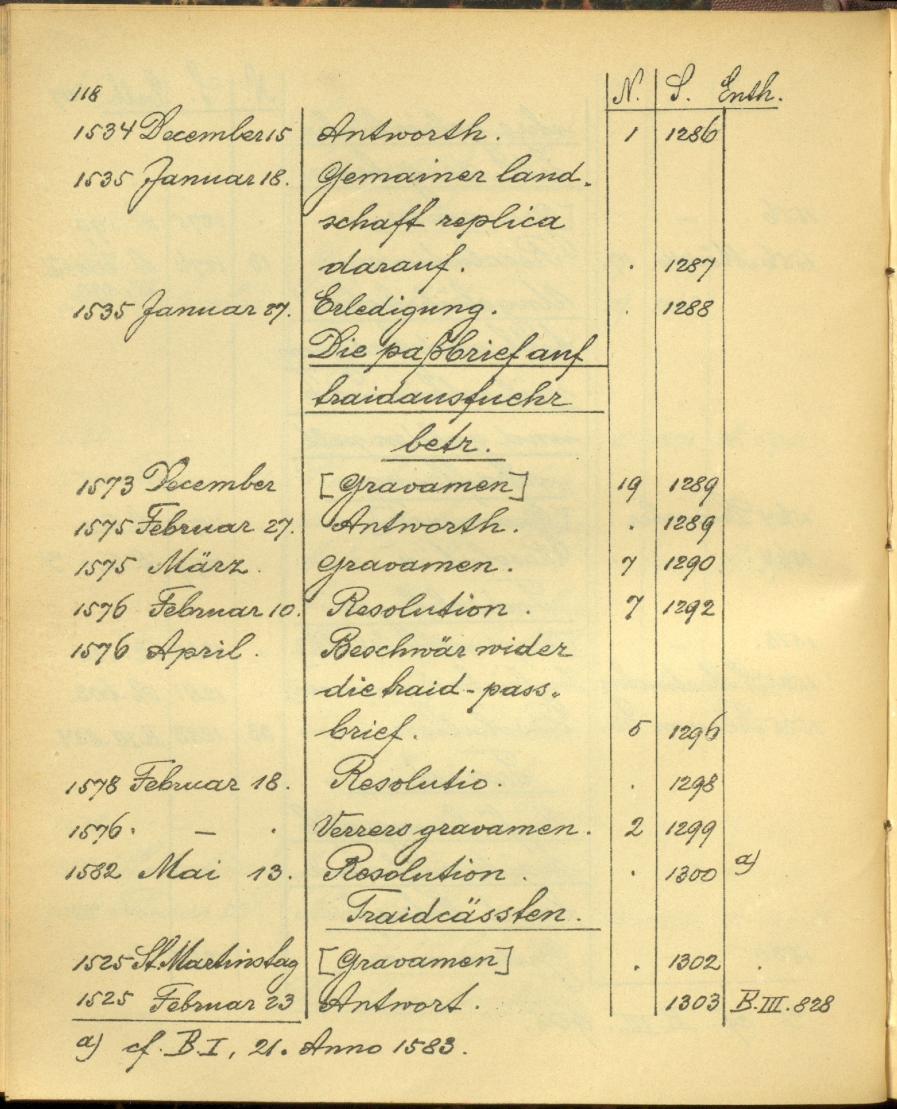 118 N. S. Enth.
1534 December 15 Antworth. 1 1286
1535 Januar 18. Gemainer land-
schaff replica
darauf. . 1287
1535 Januar 27. Erledigung. . 1288
Die paßbrief auf
traidausfuehr
betr.
1573 December [Gravamen] 19 1289
1575 Februar 27. Antworth. . 1289
1575 März. Gravamen. 7 1290
1576 Februar 10. Resolution. 7 1292
1576 April. Beschwär wider
die traid-pass-
brief. 5 1296
1578 Februar 18. Resolutio. . 1298
1576. — . Verrers gravamen. 2 1299
1582 Mai 13. Resolution. . 1300 a)
Traidcässten.
1525 St. Martinstag [Gravamen] . 1302 .
1525 Februar 23 Antwort. 1303 B. III. 828
a) cf. B. I, 21. Anno 1583.